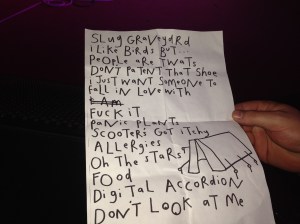 SLUG GRAVEYDRD
i LiKE BiRDS BUT...
PEOPLE ARE TWATS
DON'T PATENT THAT SHOE
i JUST WANT SOMEONE TO
FALL iN LOVE WiTH
I AM
FUCK iT
PANiC PLANTS
SCOOTERS GOT iTCHY
ALLERGiES
OH THE STARS
FOOD
DiGiTAL ACCORDiON
DON'T LOOK AT ME